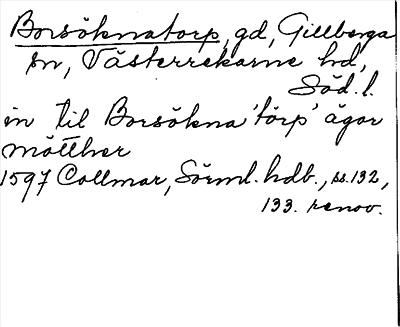 Borsöknatorp, gd, Gillberga
sn, Västerrekarne hd,
Söd. l.
in til Borsökna 'törp' ägor
mötther
1597 Collmar, Sörml. hdb., ss. 132,
133. renov.